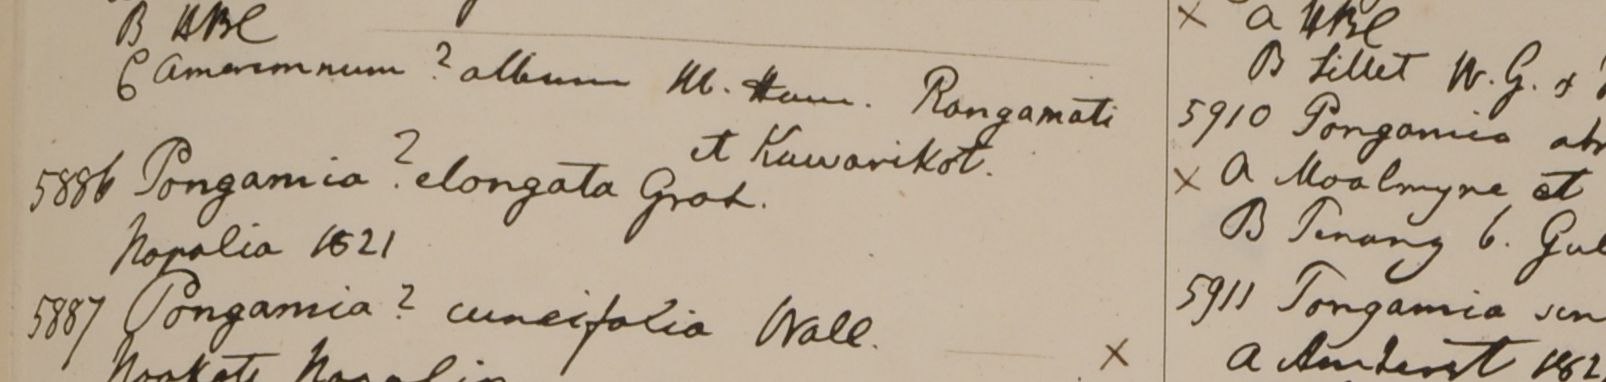 B HBC
C Amerimnum ? album Hb. Ham. Rangamati
et Kuwarikot.
5886 Pongamia ? elongata Grah.
Napalia 1821
5887 Pongamia ? cuneifolia Wall.
Napalia
x a HBC
B Sillet W. G. &
5910 Pongamia
x a Moalmyne et
B Penang G.
5911 Pongamia
x a Amherst 182